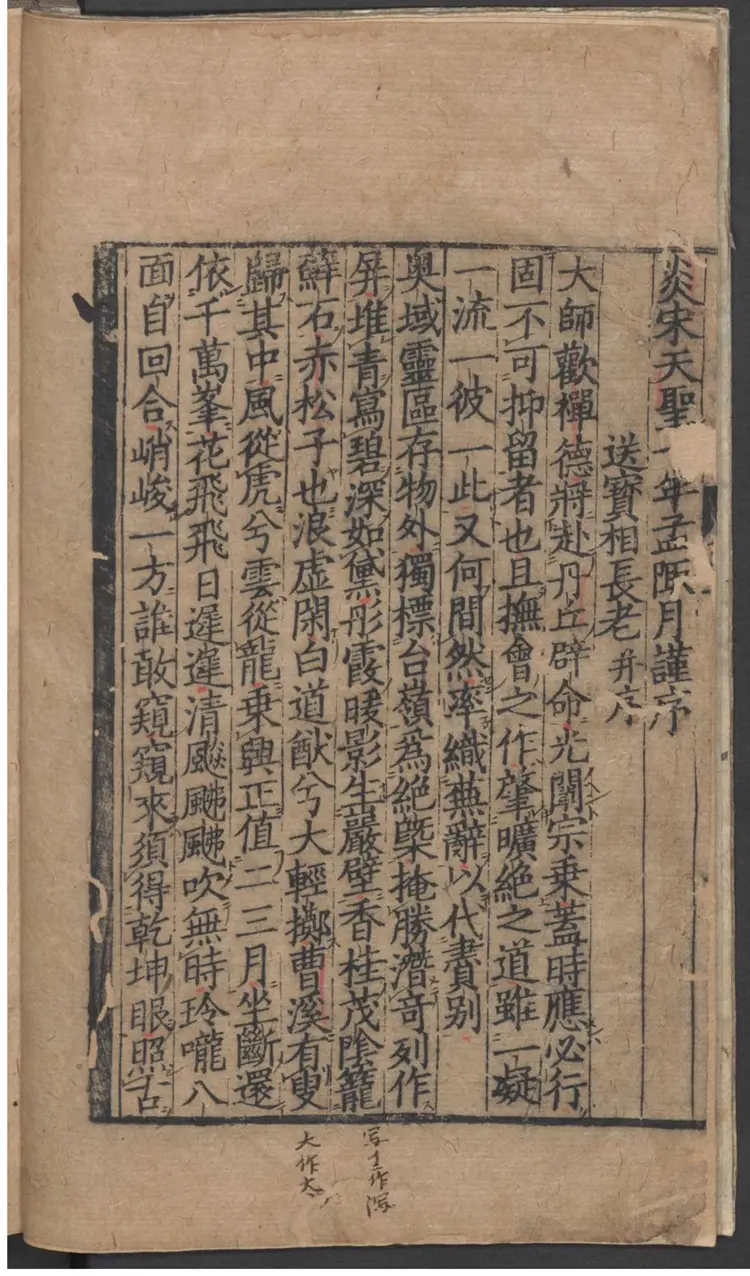 炎宋天聖 年孟陬月謹序
送寶相長老并序
大師歡禪德將赴丹丘辟命光闡宗乗蓋時應必行
固不可抑留者也且撫會之作肇曠絶之道雖一凝
一流一彼一此又何間然率織蕪辭以代賮别
奥域靈區存物外獨標台嶺爲絶槩掩勝潛奇列作
屏堆青寫碧深如黛彤霞暖影生巖壁香桂茂陰籠
蘚石赤松子也浪虚閑白道猷兮大輕擲曹溪有叟
歸其中風從虎兮雲從龍乗興正值二三月坐斷還
依千萬峯花飛飛日遲遲清飈颺颺吹無時玲嚨八
面自回合峭峻一方誰敢窺窺來須得乾坤眼照古
大作太